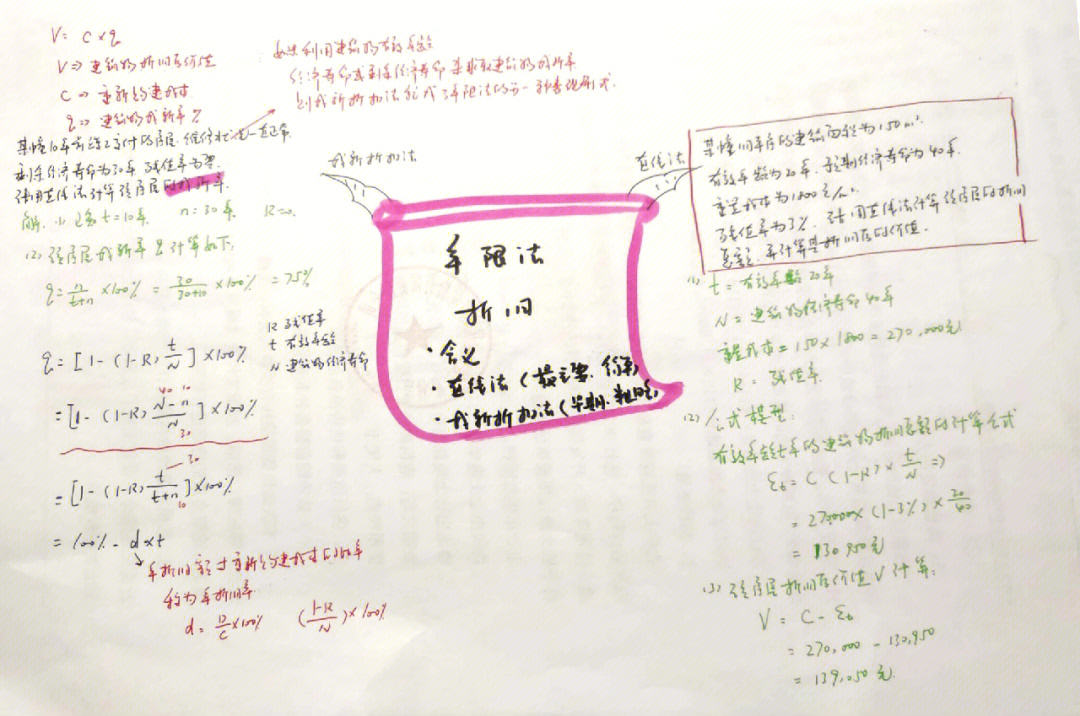 V = C × q
V ⇒ 建筑物折旧后价值
C ⇒ 重新购建成本
q ⇒ 建筑物成新率 %
如果利用建筑物有效年龄
经济寿命或剩余经济寿命来求取建筑物成新率
则成新折扣法就成了年限法的另一种表现形式.
某幢10年前竣工交付的房屋,维修状况一直正常
剩余经济寿命为30年 残值率为零.
请用直线法计算该房屋的成新率.
解: (1) 已知 t=10年. n=30年. R=0.
(2) 该房屋成新率 q 计算如下:
q = n/(t+n) ×100% = 30/(30+10) ×100% = 75%
q = [1-(1-R) t/N] ×100%
R 残值率
t 有效年龄
N 建筑物经济寿命
= [1-(1-R) (N-n)/N] ×100%
40 10
30
= [1-(1-R) t/(t+n)] ×100%
30
10
= 100% - d×t
年折旧额与重新购建成本的比率
称为年折旧率
d = D/C ×100% ((1-R)/N) ×100%
成新折扣法
直线法
年限法
折旧
·含义
·直线法(最主要、简单)
·成新折扣法(早期、粗略)
某幢旧房屋的建筑面积为150m².
有效年龄为20年. 预期经济寿命为40年.
重置成本为1800元/m².
残值率为3%. 请用直线法计算该房屋的折旧
总额, 并计算其折旧后的价值.
(1) t = 有效年龄 20年
N = 建筑物经济寿命 40年
重置成本 = 150 × 1800 = 270,000元
R = 残值率.
(2) 公式模型:
有效年龄t年的建筑物折旧总额的计算公式
Et = C (1-R) × t/N ⇒
= 270000 × (1-3%) × 20/40
= 130950元
(3) 该房屋折旧后价值V计算:
V = C - Et
= 270,000 - 130,950
= 139,050元.